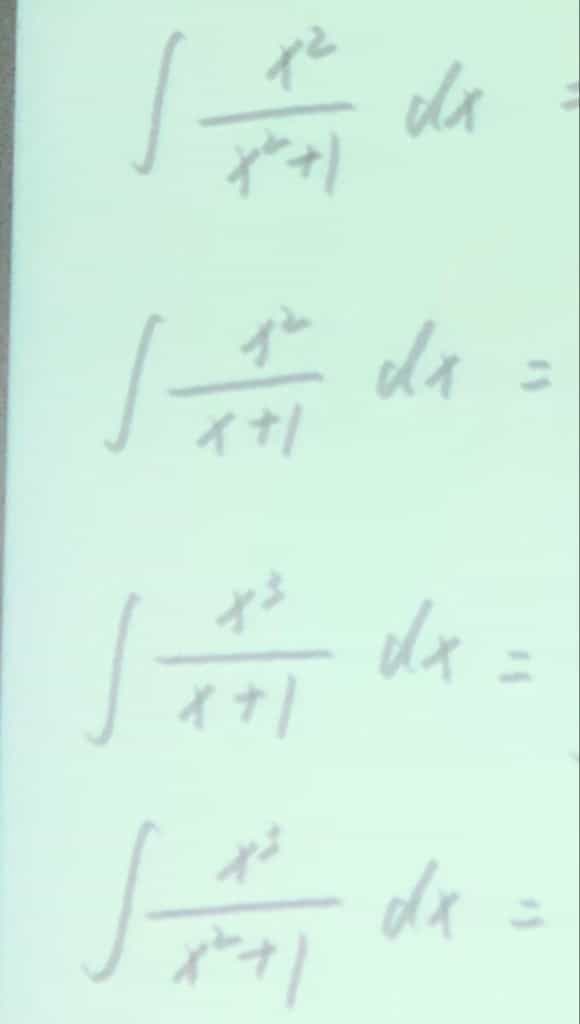 ∫ x²/(x²+1) dx =
∫ x²/(x+1) dx =
∫ x³/(x+1) dx =
∫ x³/(x²+1) dx =